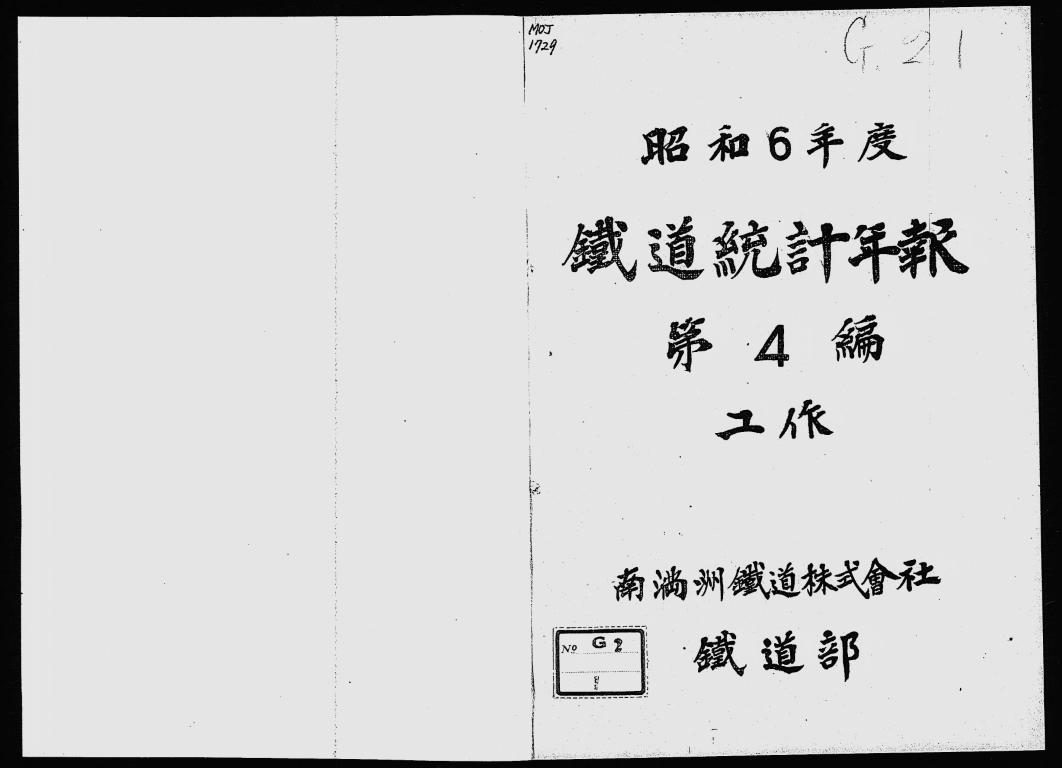 MOJ
1729
G. 21
昭和6年度
鐵道統計年報
第4編
工作
南滿洲鐵道株式會社
鐵道部
No G2
1